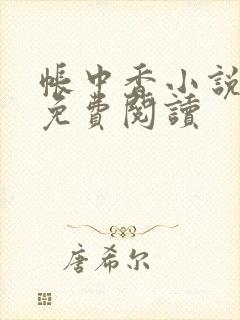 帳中香小說
免費閱讀
唐希尔